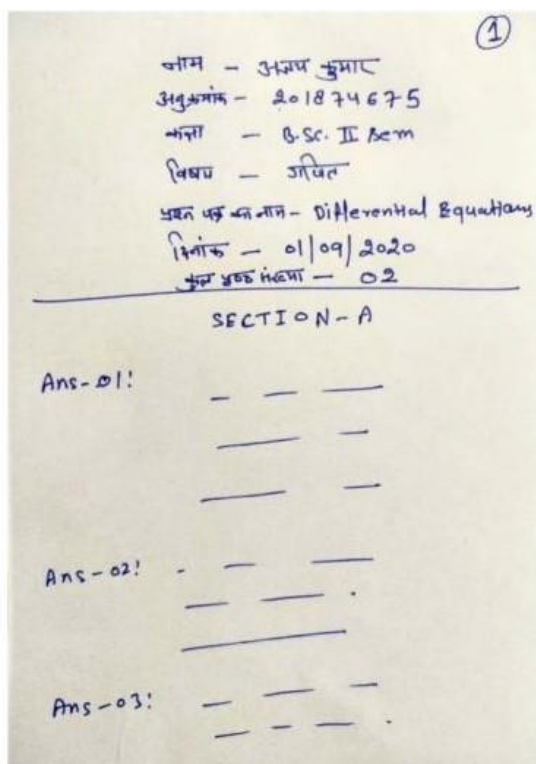 1
नाम - अजय कुमार
अनुक्रमांक - 201874675
कक्षा - B.Sc. II Sem
विषय - गणित
प्रश्न पत्र का नाम - Differential Equations
दिनांक - 01/09/2020
कुल पृष्ठ संख्या - 02
SECTION-A
Ans-01!
Ans-02!
Ans-03!